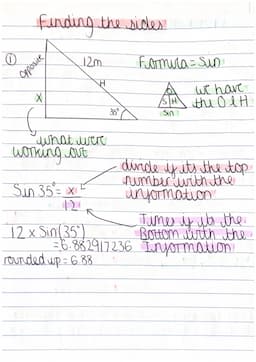 Finding the sides
①
opposite
12m
Formula = Sin
H
x
35°
O
S H
Sin
we have
the O & H
what were
working out
divide if its the top
number with the
information
Sin 35° = x
12
Times if its the
Bottom with the
information
12 x Sin(35°)
= 6.882917236
rounded up = 6.88